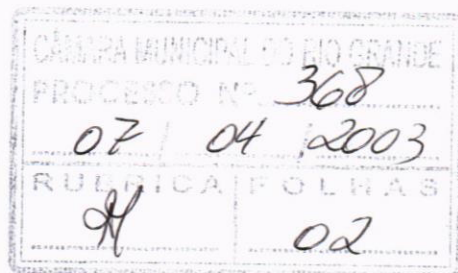 CÂMARA MUNICIPAL DO RIO GRANDE
PROCESSO Nº 368
07 / 04 / 2003
RUBRICA FOLHAS
02